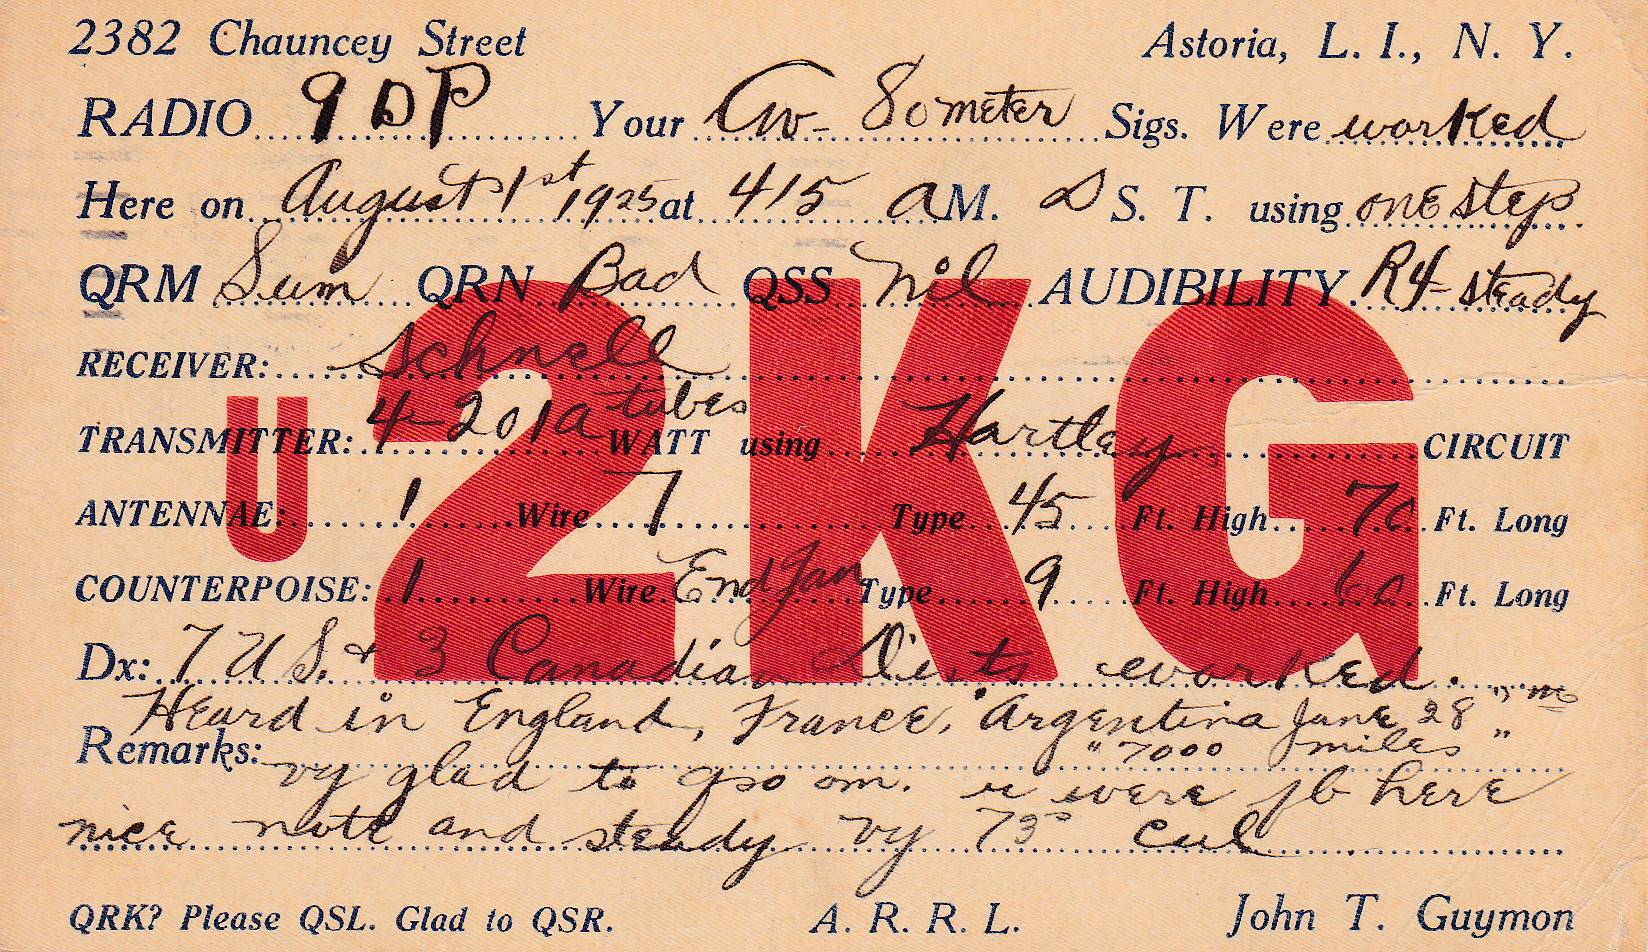 2382 Chauncey Street Astoria, L. I., N. Y.
RADIO 9DP Your CW- 80 meter Sigs. Were worked
Here on August 1st 1925 at 415 AM. D S. T. using one step
QRM Sum QRN Bad QSS nil AUDIBILITY R4- steady
RECEIVER: Schnell
TRANSMITTER: 4-201a tubes WATT using Hartley CIRCUIT
ANTENNAE: 1 Wire 7 Type 45 Ft. High 70 Ft. Long
COUNTERPOISE: 1 Wire End Fan Type 9 Ft. High 60 Ft. Long
U 2KG
Dx: 7 U.S. & 3 Canadian Dists worked.
Heard in England, France, "Argentina June 28"
"7000 miles"
Remarks: vy glad to qso om. u were fb here
nice note and steady vy 73s cul
QRK? Please QSL. Glad to QSR. A. R. R. L. John T. Guymon